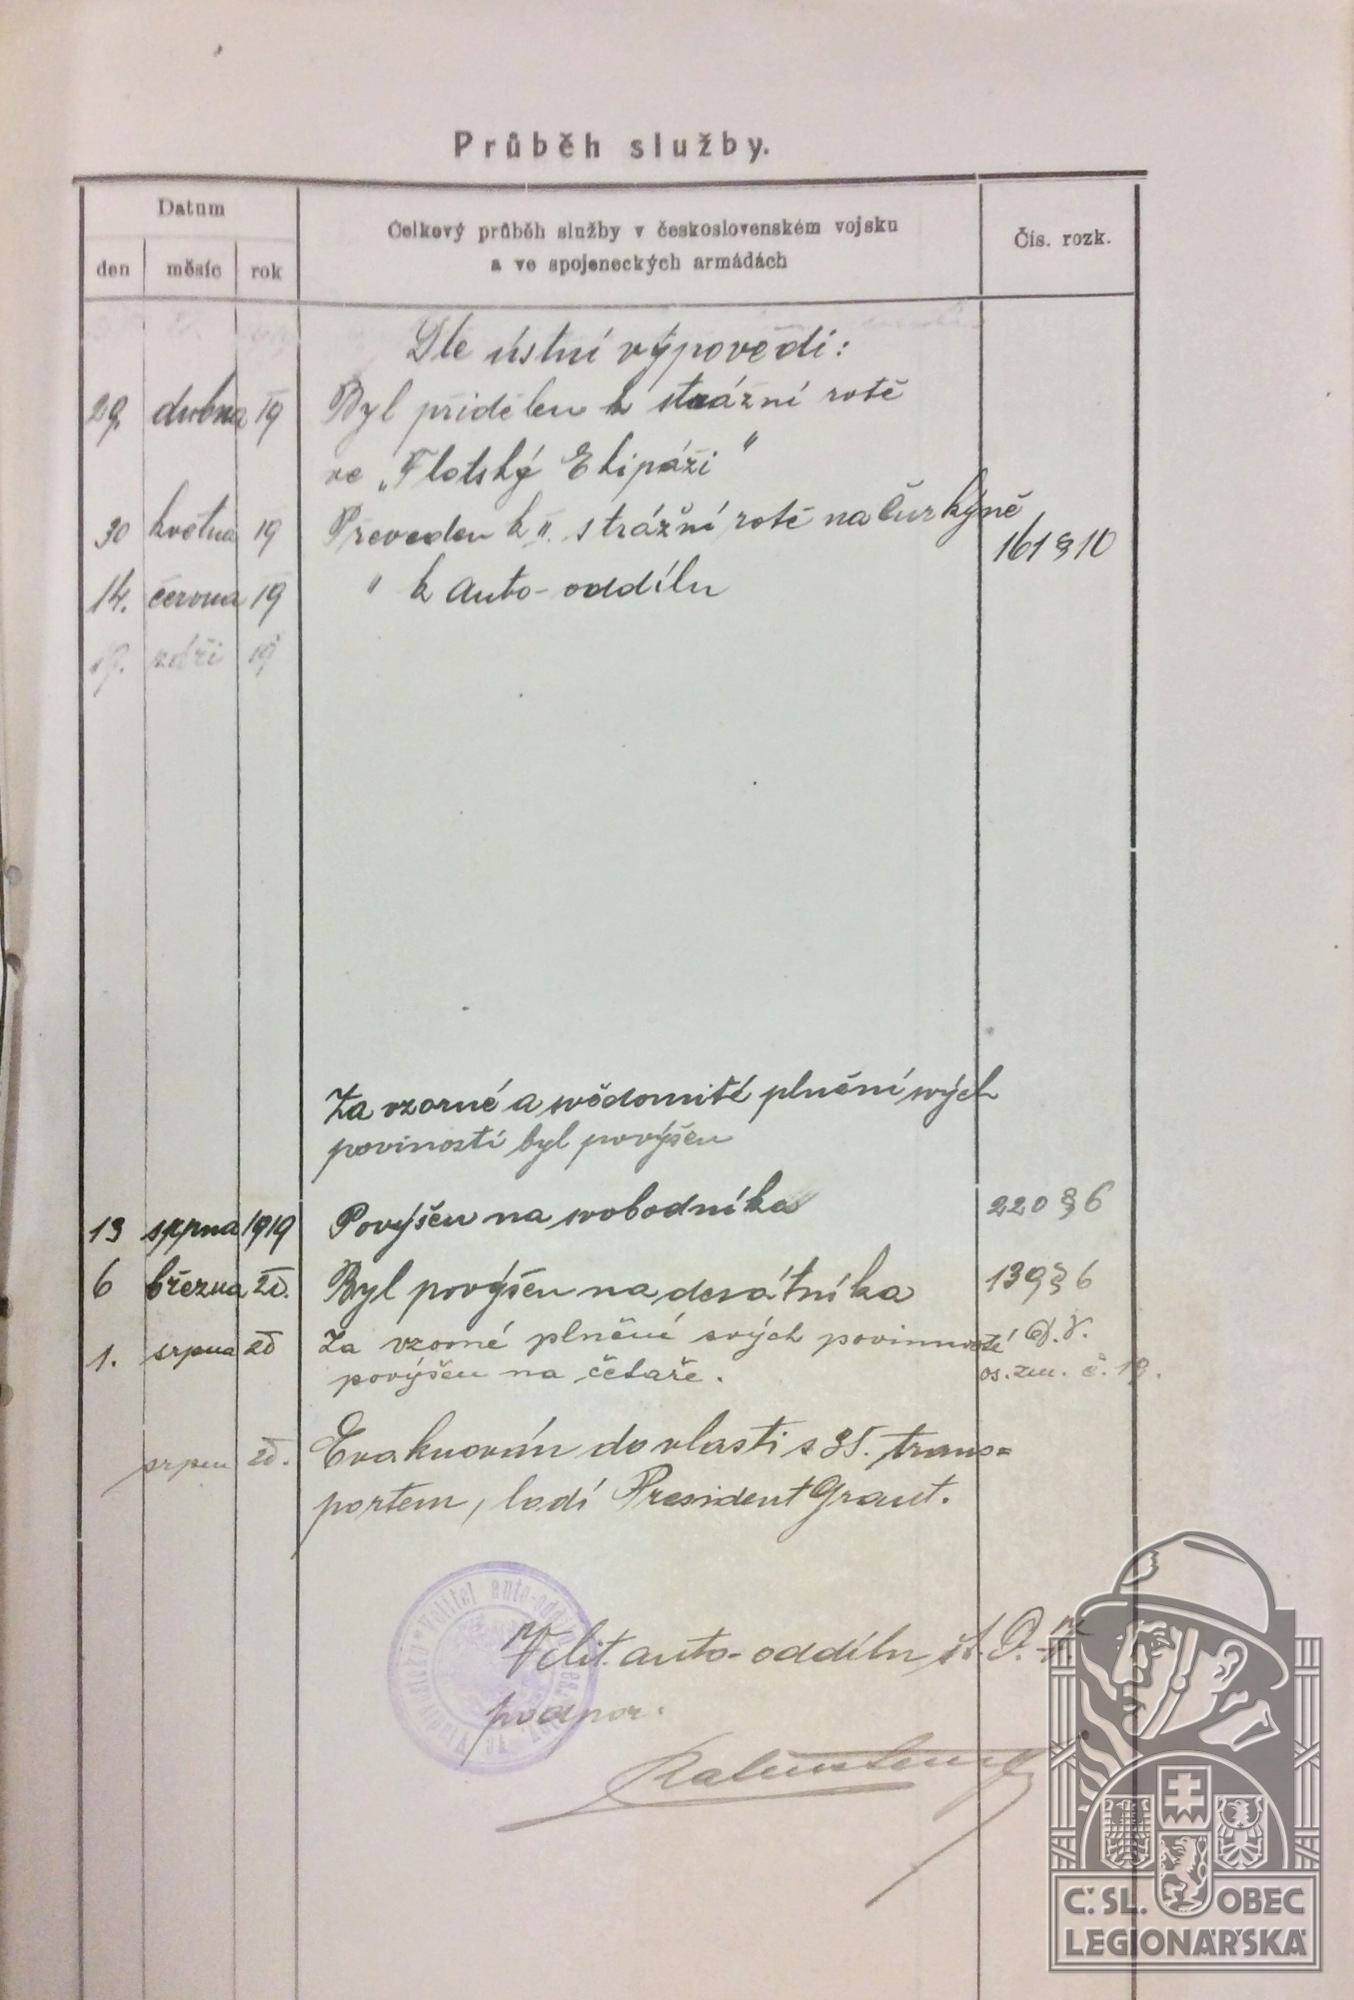 Průběh služby.
Datum
den měsíc rok
Celkový průběh služby v československém vojsku
a ve spojeneckých armádách
Čís. rozk.
Dle ústní výpovědi:
29. dubna 19 Byl přidělen k strážní rotě
ve „Flotský Ekipáži"
30 května 19 Preveden k II. strážní rotě na Čurkyně
161 § 10
14. června 19 " k auto-oddílu
19. zdři 19
Za vzorné a svědomité plnění svých
poviností byl povýšen
13 srpna 1919 Povýšen na svobodníka 220 § 6
6 března 20. Byl povýšen na desátníka 139 § 6
1. srpna 20 Za vzorné plnění svých povinností
povýšen na četaře. os. zm. č. 19.
srpen 20. Evakuován do vlasti s 35. trans-
portem, lodí President Grant.
Velit. auto-oddílu
podpor.
Velitel auto-odd
Č. SL. OBEC
LEGIONÁŘSKÁ